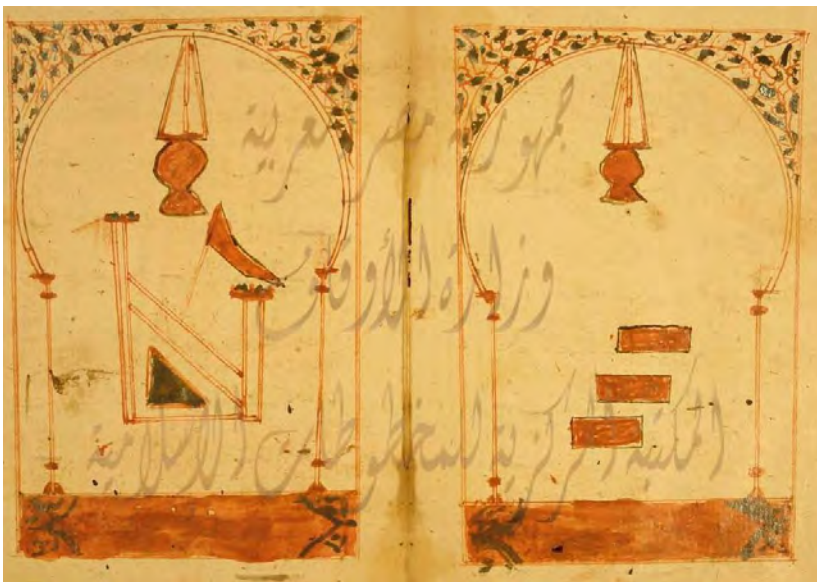 جمهورية مصر العربية
وزارة الأوقاف
المكتبة المركزية للمخطوطات الإسلامية